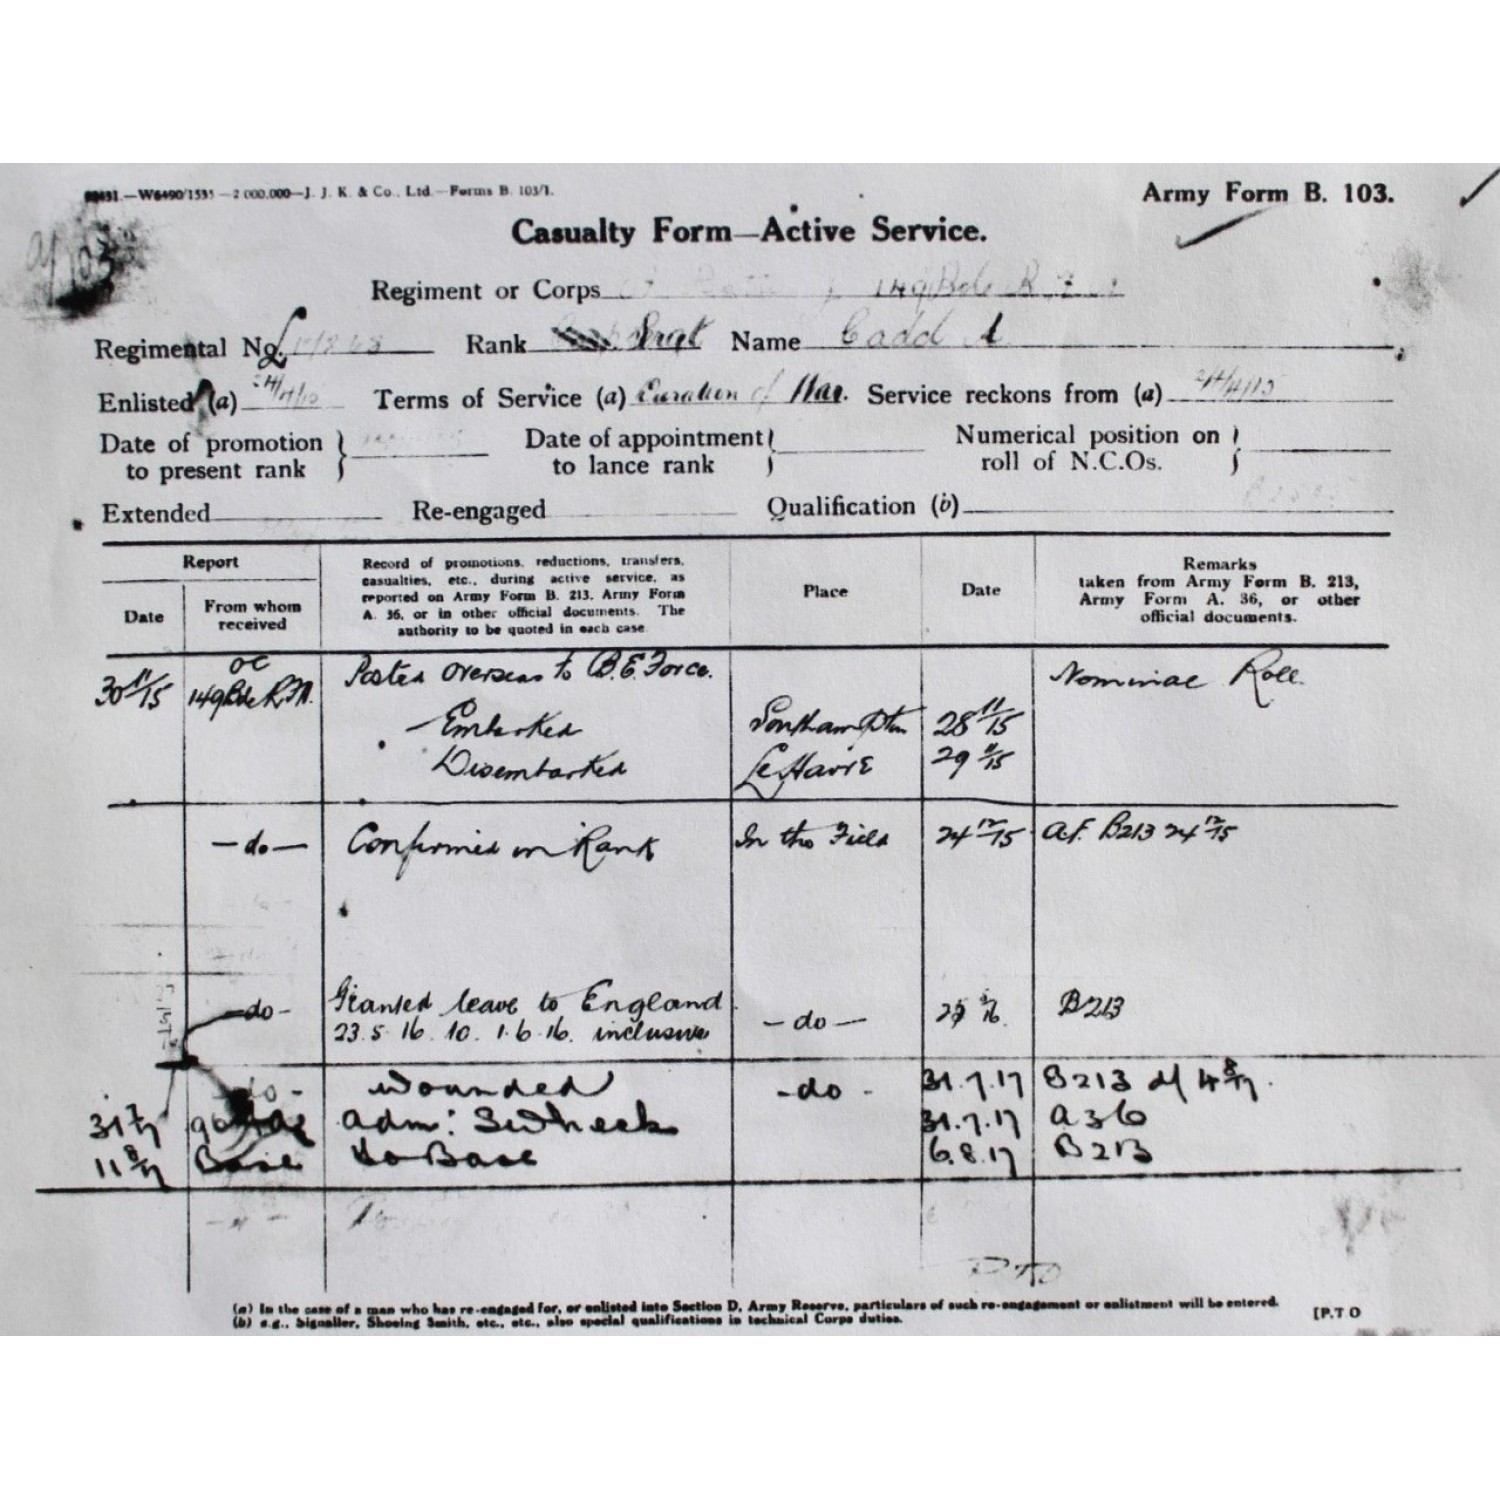 W6490/1535—2 000.000—J. J. K. & Co., Ltd.—Forms B. 103/1.
Army Form B. 103.
Casualty Form—Active Service.
Regiment or Corps 149 Bde R F A
Regimental No. L Rank Sergt Name Cadd A
Enlisted (a) 24/4/15 Terms of Service (a) Duration of War. Service reckons from (a) 24/4/15
Date of promotion to present rank
Date of appointment to lance rank
Numerical position on roll of N.C.Os.
Extended Re-engaged Qualification (b)
Report
Date
From whom received
Record of promotions, reductions, transfers,
casualties, etc., during active service, as
reported on Army Form B. 213, Army Form
A. 36, or in other official documents. The
authority to be quoted in each case.
Place
Date
Remarks
taken from Army Form B. 213,
Army Form A. 36, or other
official documents.
30 11/15 OC 149 Bde R.F.A. Posted overseas to B.E.Force. Nominal Roll.
Embarked Southampton 28 11/15
Disembarked Le Havre 29 11/15
—do— Confirmed in Rank In the Field 24 12/15 A.F. B213 24 12/15
—do— Granted leave to England —do— B213
23.5.16. to. 1.6.16. inclusive
do- Wounded -do- 31.7.17 B213 d/ 4 8/17.
31 7/17 adm: 31.7.17 A36
11 8/17 Base to Base 6.8.17 B213
PTO
(a) In the case of a man who has re-engaged for, or enlisted into Section D, Army Reserve, particulars of such re-engagement or enlistment will be entered.
(b) e.g., Signaller, Shoeing Smith, etc., etc., also special qualifications in technical Corps duties.
[P.T O